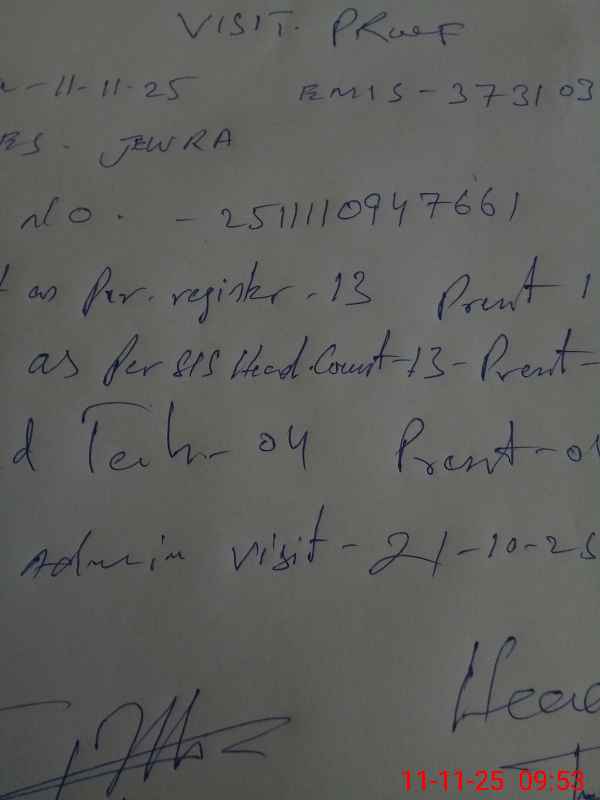 VISIT. PRooF
- 11-11-25 EMIS - 373103
ES. JEWRA
NO. - 251111094766 1
as Per. register - 13 Prent 1
as Per SIS Head.Count-13-Prent-
d Teh- 04 Presnt-0
Admin visit - 21-10-25
Head
11-11-25 09:53